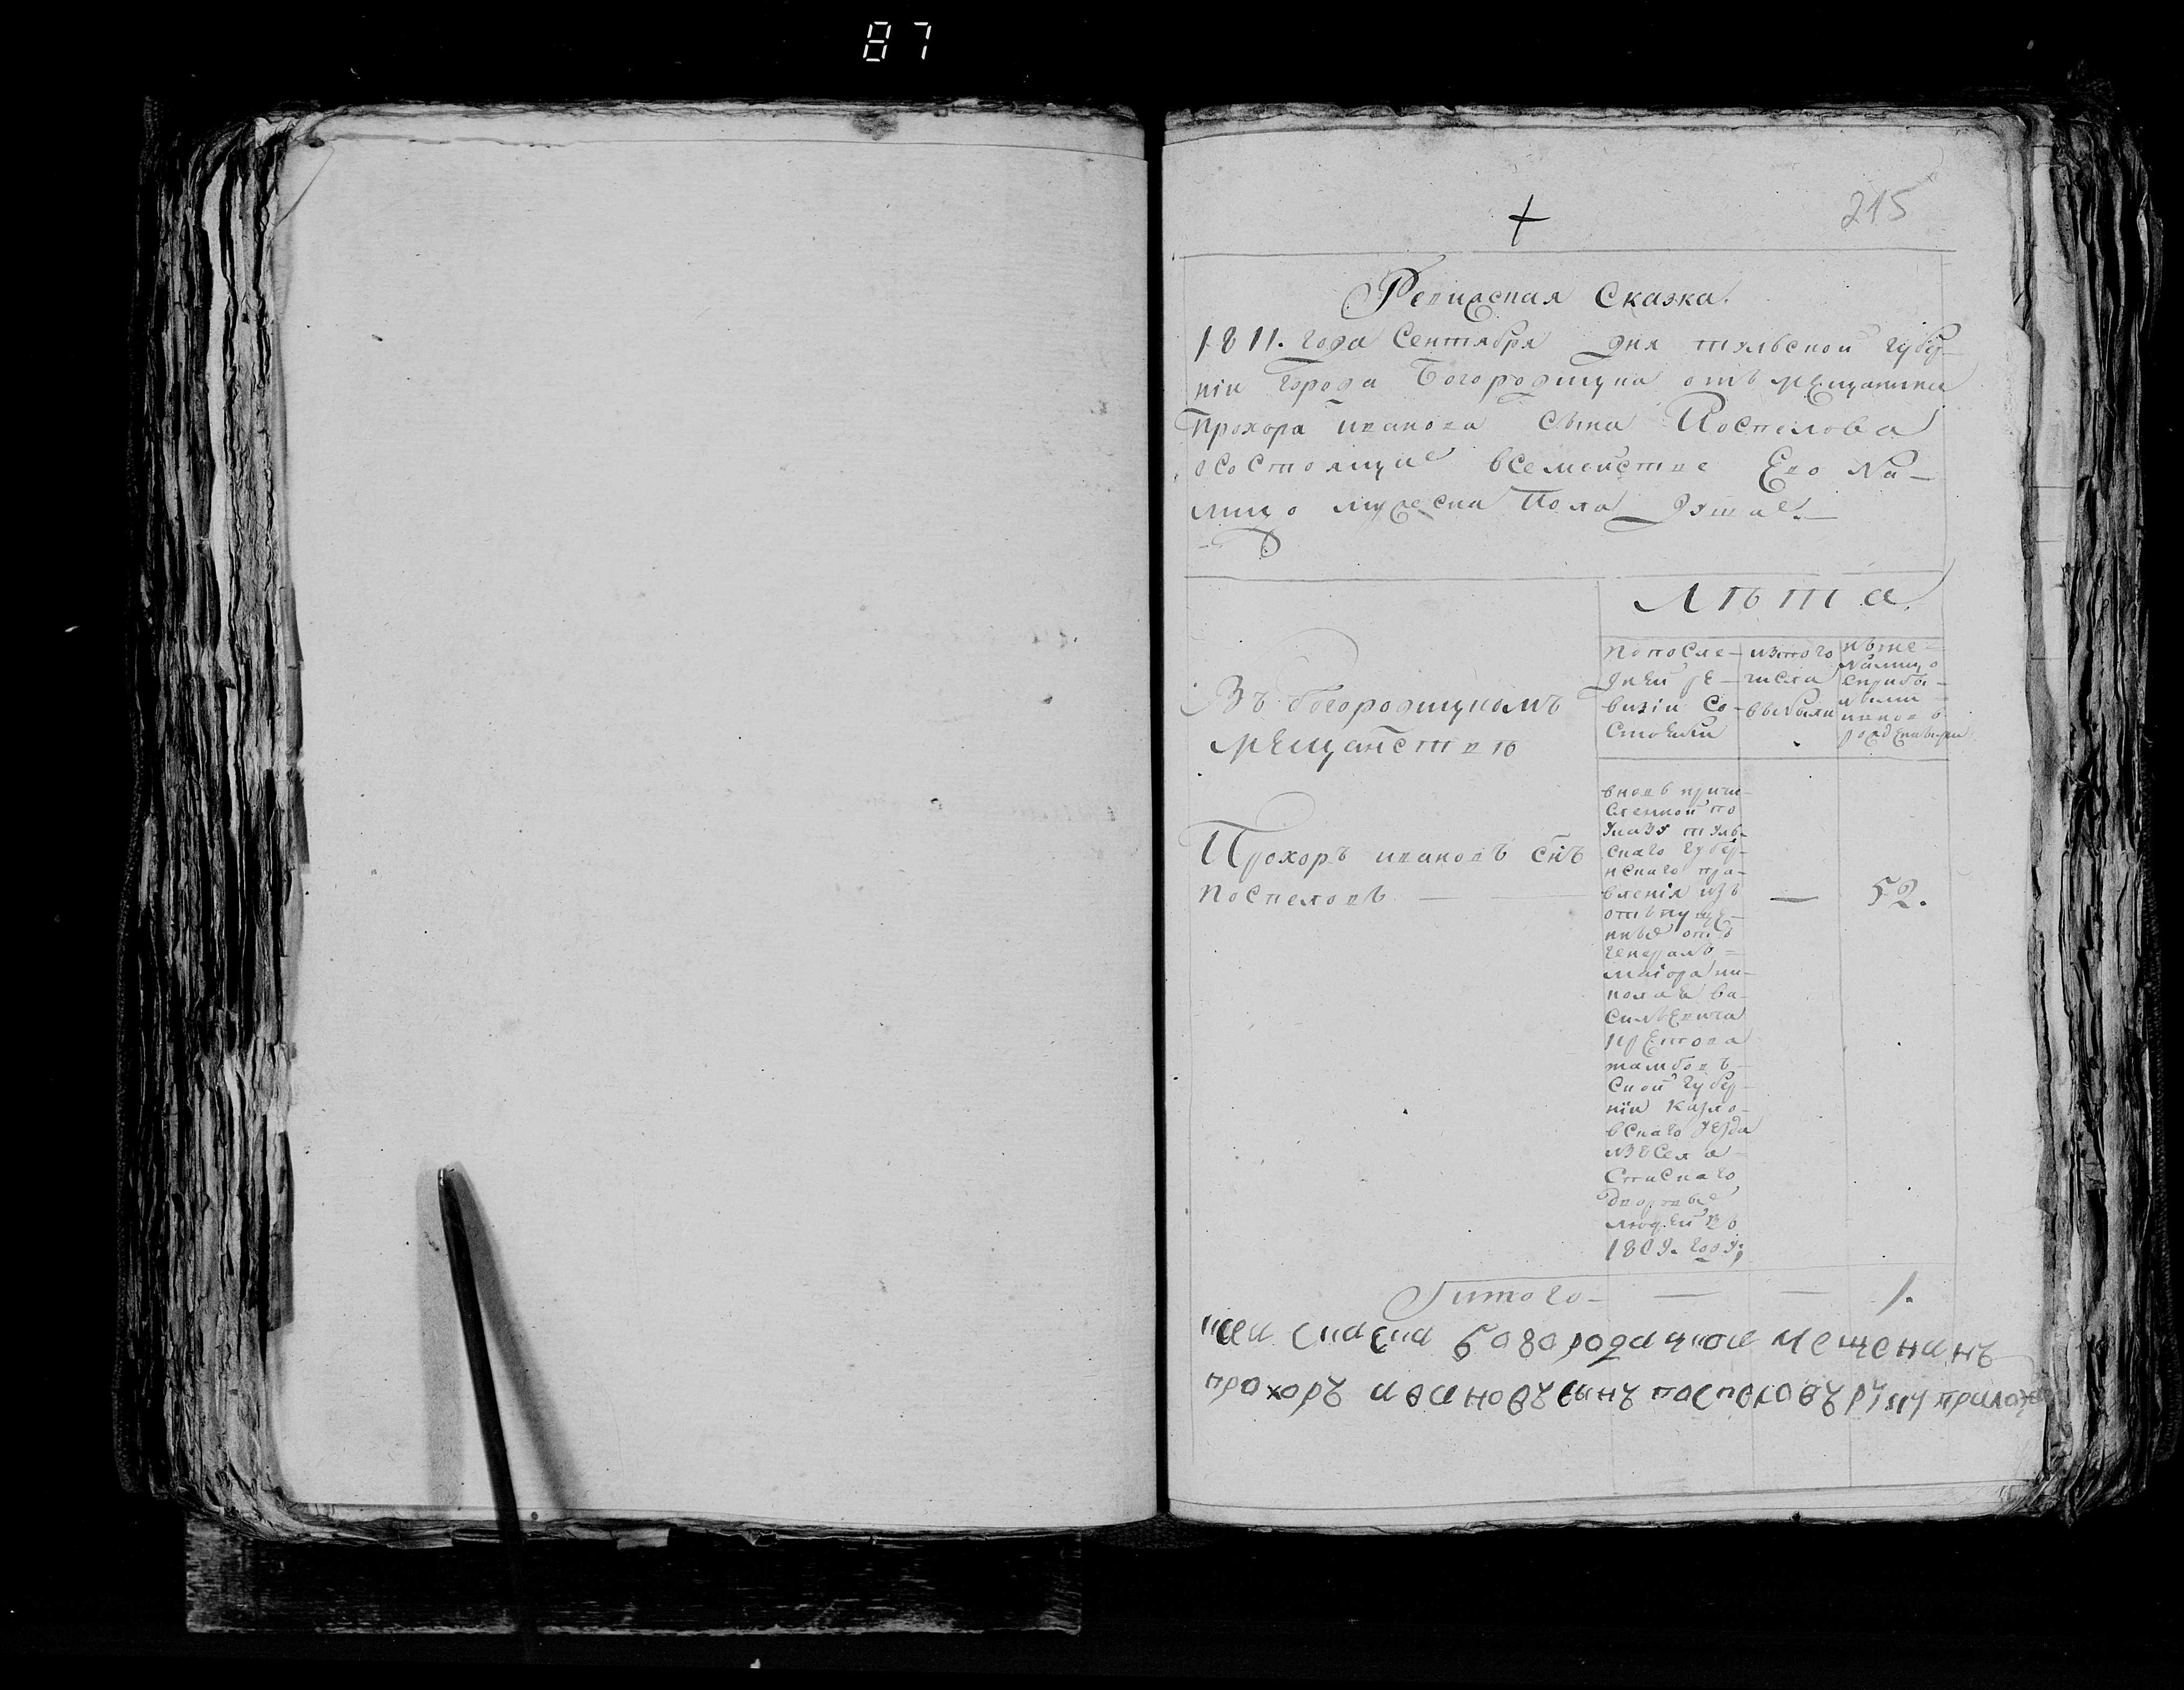 87
215
Ревизская Сказка.
1811. года Сентября дня тульской губер-
нiи Города Богородицка отъ мещанина
Прохора иванова сына Поспелова
о состоящие всемействе Его На-
лицо мужеска Пола душае.
Лѣта
Въ богородицкомъ
мещанствѣ
попосле-
дней ре-
визiи Со-
стояли
изтого
числа
выбыли
ныне
Налицо
вновь
Прохоръ ивановъ снъ
поспеловъ —
вновь причи-
сленной по
указу туль-
скаго губер-
нскаго пра-
вленiя изъ
отпуще-
нные отъ
генералъ =
маiора ни-
колая ва-
сильевича
тамбовъ-
ской губер-
нiи
вскаго уезда
изъ села
дворовые
людей въ
1809. году,
— 52.
итого — — — 1.
сказка богородицкое мещенинъ
прохоръ ивановъ сынъ поспеловъ руку прилож